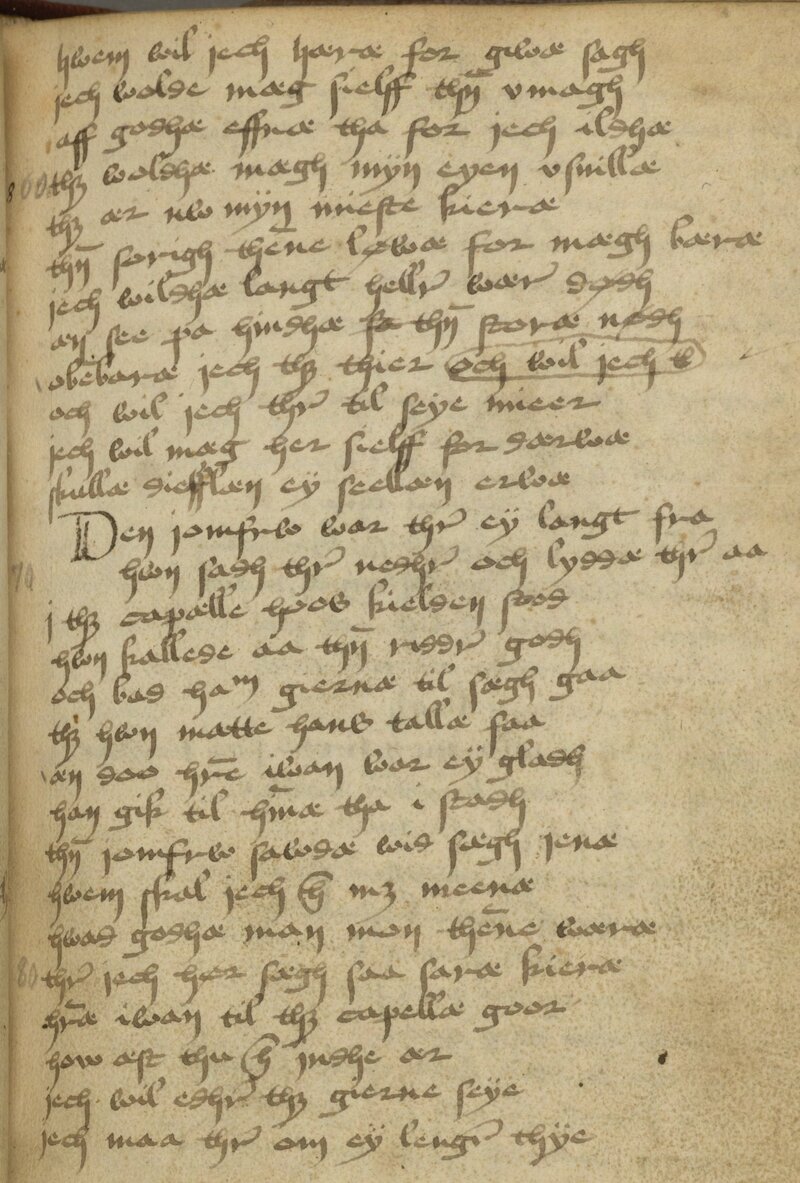 hwem wil jech kæræ for giwæ sagh
jech wolde mæg sielff thn̄ vmagh
aff godhæ effnæ tha for jech ildhæ
thꝫ woldhæ mægh myn eyen vsnillæ
thꝫ ær nw myn mieste kieræ
thn̄ sorigh thēne løwæ for mægh bæræ
jech wildhæ langt hellr̄ wær̄ dødh
æn see pa hindhæ sa thn̄ storæ nødh
obēbaræ jech thꝫ thier och wil jech t
och wil jech thr̄ til seye mieer
jech wil mæg her sielff for dærwæ
skullæ diefflæn ey seellæn erwæ
Den jomfrw war thr̄ ey langt fra
hwn sadh thr̄ nedhr̄ och lyddæ thr̄ aa
j thꝫ capælle hoos kielden stod
hwn kallede aa thn̄ riddr̄ godh
och bad ham giernæ til sægh gaa
thꝫ hwn matte hans tallæ faa
æn doo hr̄e iwan war ey gladh
han gik til hn̄næ tha i stadh
thn̄ jomfrw sawdæ wid sægh jenæ
hwem skal jech h̄ mꝫ meenæ
hwad godhæ man mon thēne wæræ
thr̄ jech hør sægh saa saræ kieræ
hr̄æ iwan til thꝫ capellæ goor
how æst thu h̄ jndhe ær
jech wil edhr̄ thꝫ gierne seye
jech maa thr̄ om ey lengr̄ thye